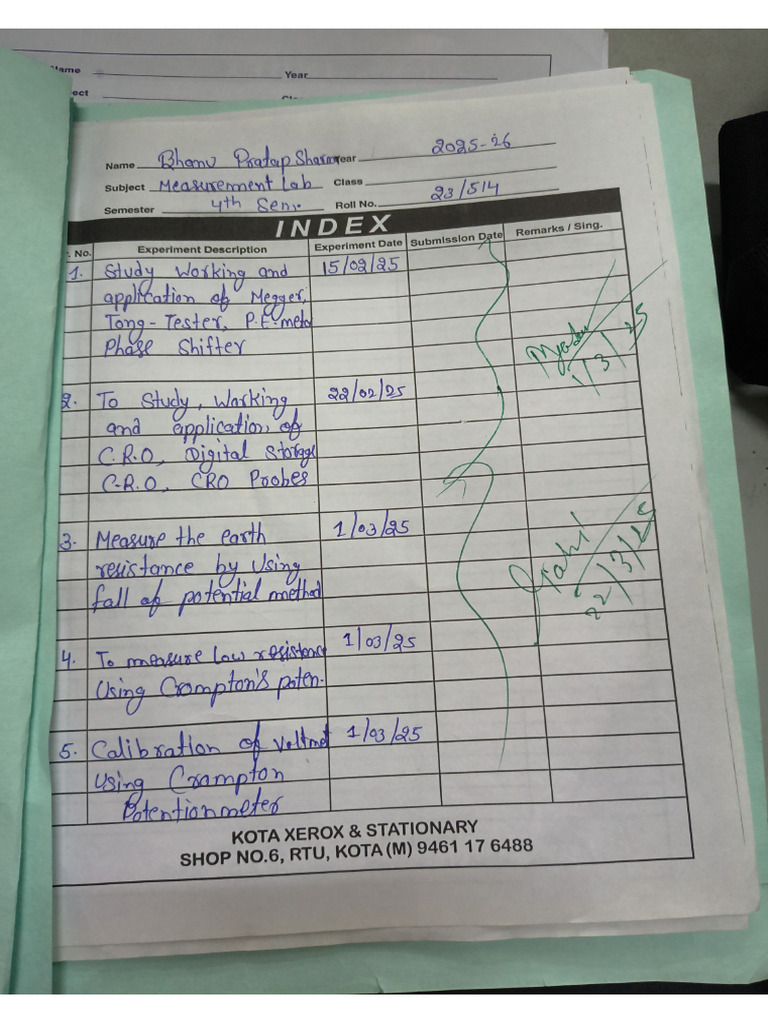 Name Year
ect
Name Bhanu Pratap Sharma Year 2025-26
Subject Measurement Lab Class
Semester 4th Sem. Roll No. 23/514
INDEX
r. No. Experiment Description Experiment Date Submission Date Remarks / Sing.
1. Study Working and 15/02/25
application of Megger,
Tong-Tester, P.F. meter
Phase Shifter
1/3/25
2. To Study, Working 22/02/25
and application of
C.R.O, Digital Storage
C.R.O, CRO Probes
3. Measure the earth 1/03/25
resistance by Using
fall of potential method
22/3/25
4. To measure low resistance 1/03/25
Using Crompton's poten.
5. Calibration of Voltmet 1/03/25
Using Crompton
Potentionmeter
KOTA XEROX & STATIONARY
SHOP NO.6, RTU, KOTA (M) 9461 17 6488